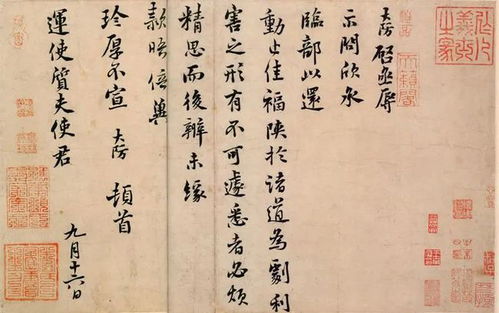 大防啓亟辱
示問欣承
臨部以還
動止佳福陝於諸道為劇利
害之形有不可遽悉者必煩
精思而後辨未緣
款晤倍冀
珍厚不宣 大防 頓首
運使質夫使君
九月十六日